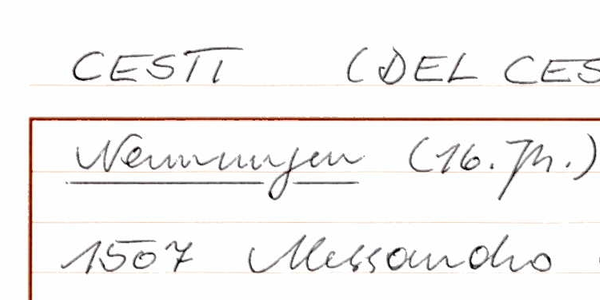 CESTI (DEL CES
Nennungen (16. Jh.)
1507 Alessandro